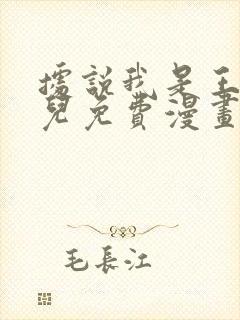 據說我是王
兒免費漫畫
毛長江